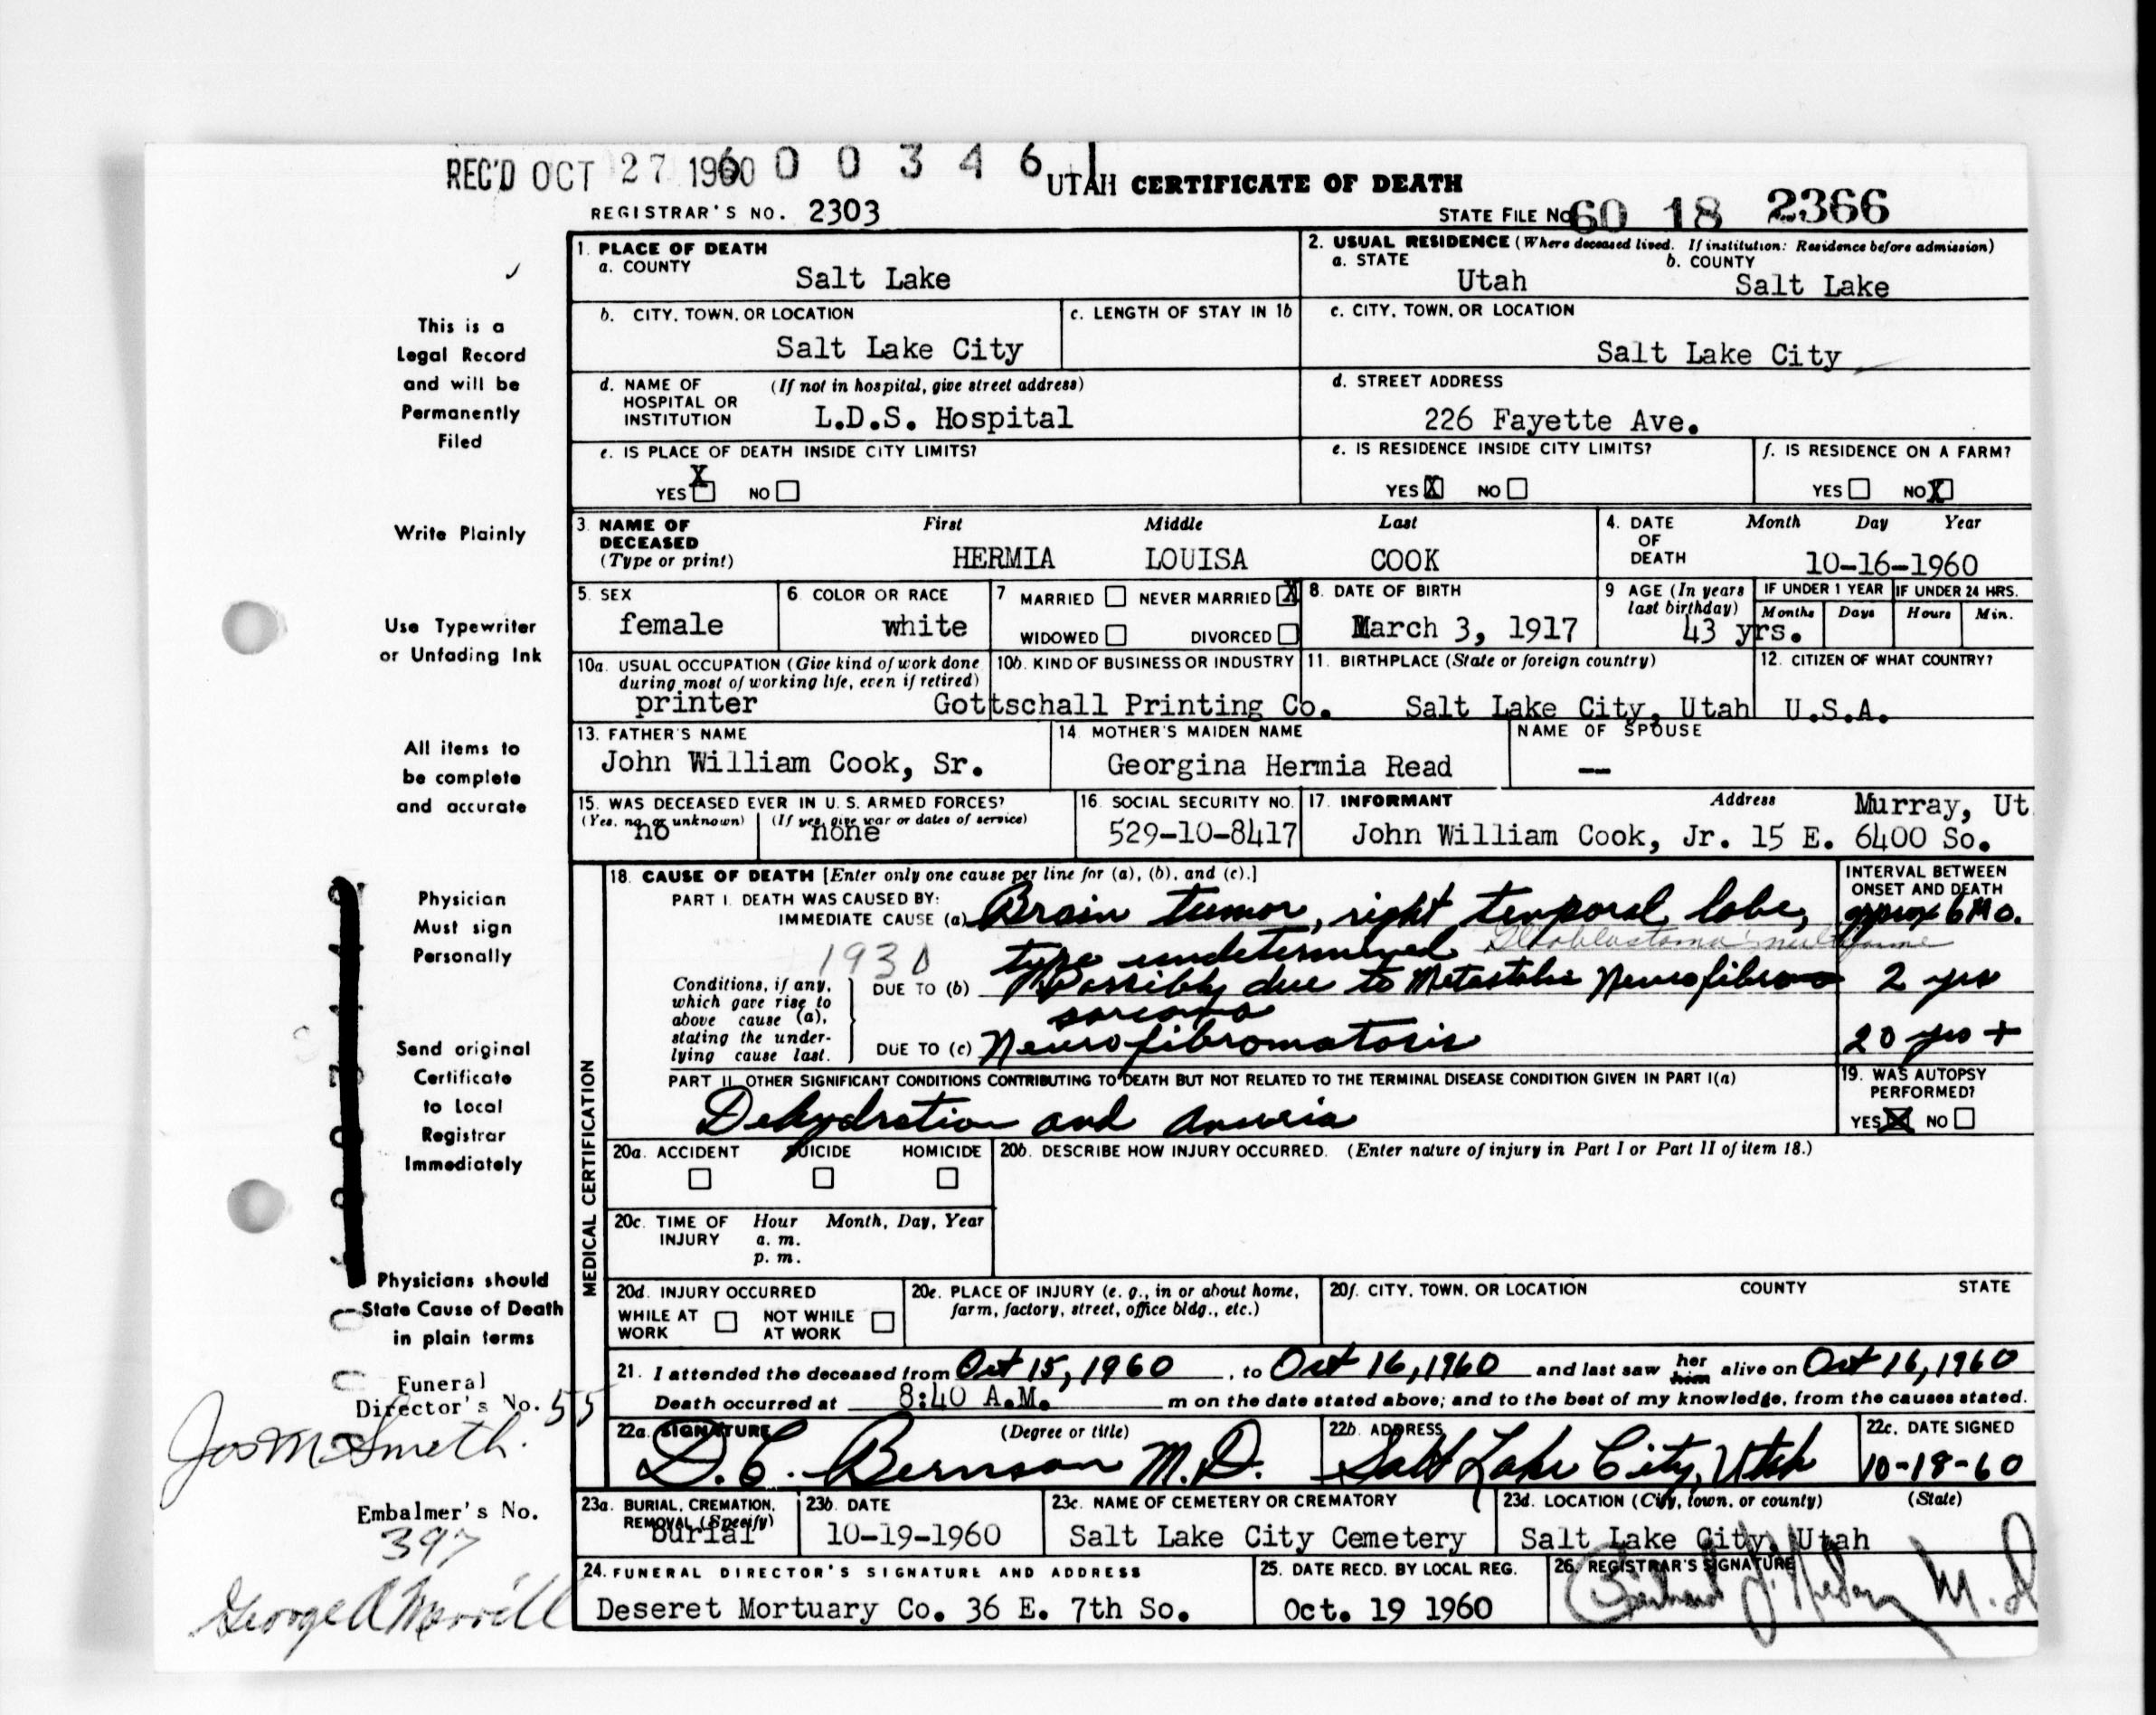 REC'D OCT 27 1960 6 0 0 3 4 6 1
UTAH CERTIFICATE OF DEATH
REGISTRAR'S NO. 2303
STATE FILE No. 60 18 2366
This is a
Legal Record
and will be
Permanently
Filed
Write Plainly
Use Typewriter
or Unfading Ink
All items to
be complete
and accurate
Physician
Must sign
Personally
Send original
Certificate
to Local
Registrar
Immediately
Physicians should
State Cause of Death
in plain terms
Funeral
Director's No. 55
Jos M Smith.
Embalmer's No.
397
George A Merrill
1. PLACE OF DEATH
a. COUNTY
Salt Lake
2. USUAL RESIDENCE (Where deceased lived. If institution: Residence before admission)
a. STATE
Utah
b. COUNTY
Salt Lake
b. CITY, TOWN, OR LOCATION
Salt Lake City
c. LENGTH OF STAY IN 1b
c. CITY, TOWN, OR LOCATION
Salt Lake City
d. NAME OF (If not in hospital, give street address)
HOSPITAL OR
INSTITUTION L.D.S. Hospital
d. STREET ADDRESS
226 Fayette Ave.
e. IS PLACE OF DEATH INSIDE CITY LIMITS?
YES X NO
e. IS RESIDENCE INSIDE CITY LIMITS?
YES X NO
f. IS RESIDENCE ON A FARM?
YES NO X
3. NAME OF First Middle Last
DECEASED
(Type or print) HERMIA LOUISA COOK
4. DATE Month Day Year
OF
DEATH 10-16-1960
5. SEX
female
6. COLOR OR RACE
white
7 MARRIED NEVER MARRIED X
WIDOWED DIVORCED
8. DATE OF BIRTH
March 3, 1917
9 AGE (In years
last birthday)
43 yrs.
IF UNDER 1 YEAR
Months Days
IF UNDER 24 HRS.
Hours Min.
10a. USUAL OCCUPATION (Give kind of work done
during most of working life, even if retired)
printer
10b. KIND OF BUSINESS OR INDUSTRY
Gottschall Printing Co.
11. BIRTHPLACE (State or foreign country)
Salt Lake City, Utah
12. CITIZEN OF WHAT COUNTRY?
U.S.A.
13. FATHER'S NAME
John William Cook, Sr.
14. MOTHER'S MAIDEN NAME
Georgina Hermia Read
NAME OF SPOUSE
--
15. WAS DECEASED EVER IN U. S. ARMED FORCES?
(Yes, no, or unknown) (If yes, give war or dates of service)
no none
16. SOCIAL SECURITY NO.
529-10-8417
17. INFORMANT Address Murray, Ut
John William Cook, Jr. 15 E. 6400 So.
MEDICAL CERTIFICATION
18. CAUSE OF DEATH [Enter only one cause per line for (a), (b), and (c).]
INTERVAL BETWEEN
ONSET AND DEATH
PART I. DEATH WAS CAUSED BY:
IMMEDIATE CAUSE (a) Brain tumor, right temporal lobe, approx 6 Mo.
1930 type undetermined Glioblastoma multiforme
Conditions, if any,
which gave rise to
above cause (a),
stating the under-
lying cause last.
DUE TO (b) Possibly due to Metastatic Neurofibro 2 yrs
sarcoma
DUE TO (c) Neurofibromatosis 20 yrs +
PART II. OTHER SIGNIFICANT CONDITIONS CONTRIBUTING TO DEATH BUT NOT RELATED TO THE TERMINAL DISEASE CONDITION GIVEN IN PART I(a)
Dehydration and
19. WAS AUTOPSY
PERFORMED?
YES X NO
20a. ACCIDENT SUICIDE HOMICIDE
20b. DESCRIBE HOW INJURY OCCURRED. (Enter nature of injury in Part I or Part II of item 18.)
20c. TIME OF Hour Month, Day, Year
INJURY a. m.
p. m.
20d. INJURY OCCURRED
WHILE AT NOT WHILE
WORK AT WORK
20e. PLACE OF INJURY (e. g., in or about home,
farm, factory, street, office bldg., etc.)
20f. CITY, TOWN, OR LOCATION COUNTY STATE
21. I attended the deceased from Oct 15, 1960, to Oct 16, 1960 and last saw her him alive on Oct 16, 1960
Death occurred at 8:40 A.M. m on the date stated above; and to the best of my knowledge, from the causes stated.
22a. SIGNATURE (Degree or title)
D. C. Bernson M.D.
22b. ADDRESS
Salt Lake City, Utah
22c. DATE SIGNED
10-18-60
23a. BURIAL, CREMATION,
REMOVAL (Specify)
Burial
23b. DATE
10-19-1960
23c. NAME OF CEMETERY OR CREMATORY
Salt Lake City Cemetery
23d. LOCATION (City, town, or county) (State)
Salt Lake City, Utah
24. FUNERAL DIRECTOR'S SIGNATURE AND ADDRESS
Deseret Mortuary Co. 36 E. 7th So.
25. DATE RECD. BY LOCAL REG.
Oct. 19 1960
26. REGISTRAR'S SIGNATURE
M.D